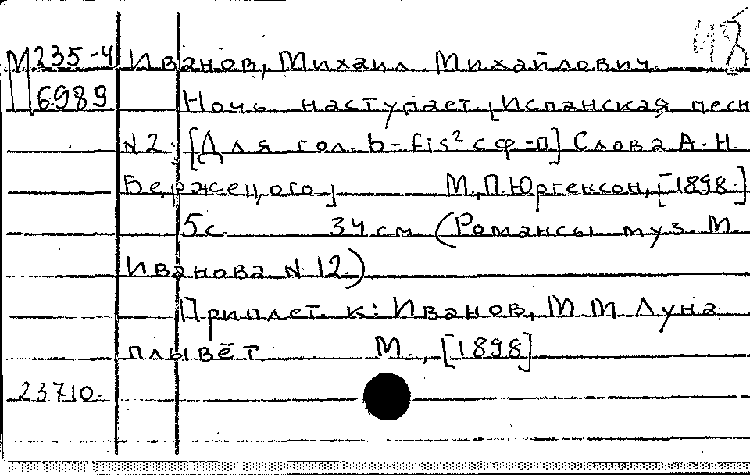 48
М 235-4 Иванов, Михаил Михайлович
6989 Ночь наступает [Испанская песн
N 2. [Для гол. b-fis² с ф-п] Слова А. Н.
М., П. Юргенсон, [1898.]
5 с. 34 см (Романсы муз. М.
Иванова N 12.)
Приплет. к: Иванов, М М Луна
плывёт М., [1898]
23710.